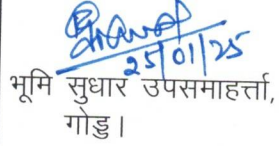 25/01/25
भूमि सुधार उपसमाहर्त्ता,
गोड्डा।